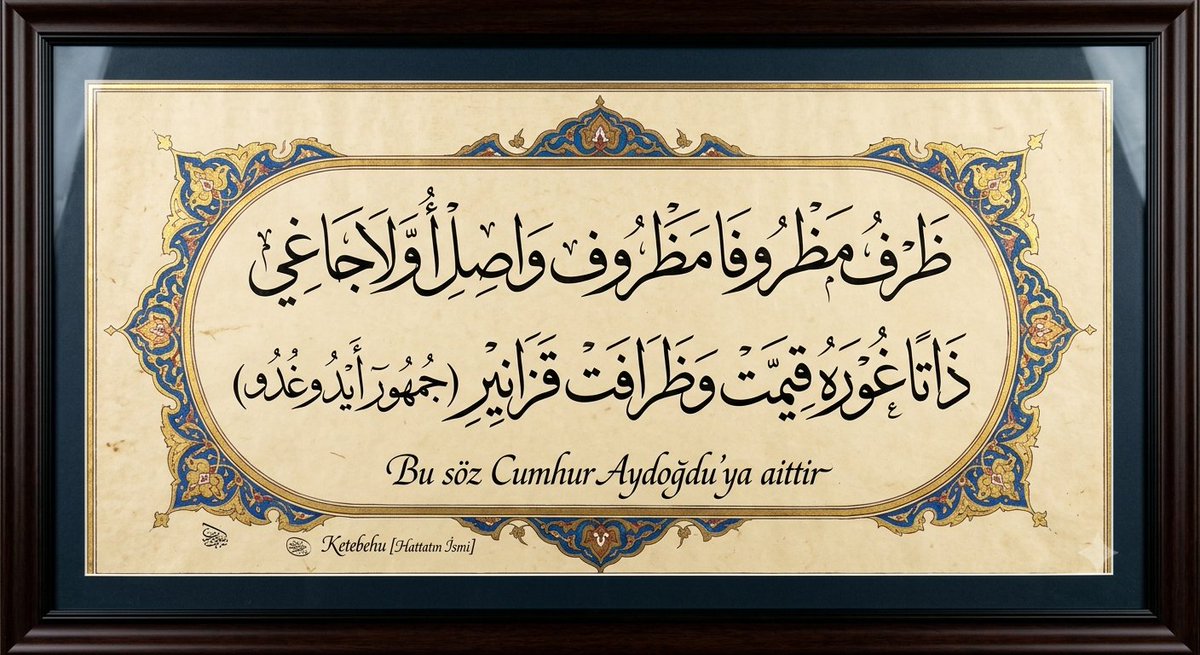 ظَرْفُ مَظْرُوفَا مَظْرُوف وَاصِلْ أُوَّلَاجَاغِي
ذَاتًا غُورَهُ قِيمَّتْ وَظَرَافَتْ قَزَانِيرِ (جُمْهُورْ أَيْدُوغُدُو)
Bu söz Cumhur Aydoğdu'ya aittir
Ketebehu [Hattatın İsmi]